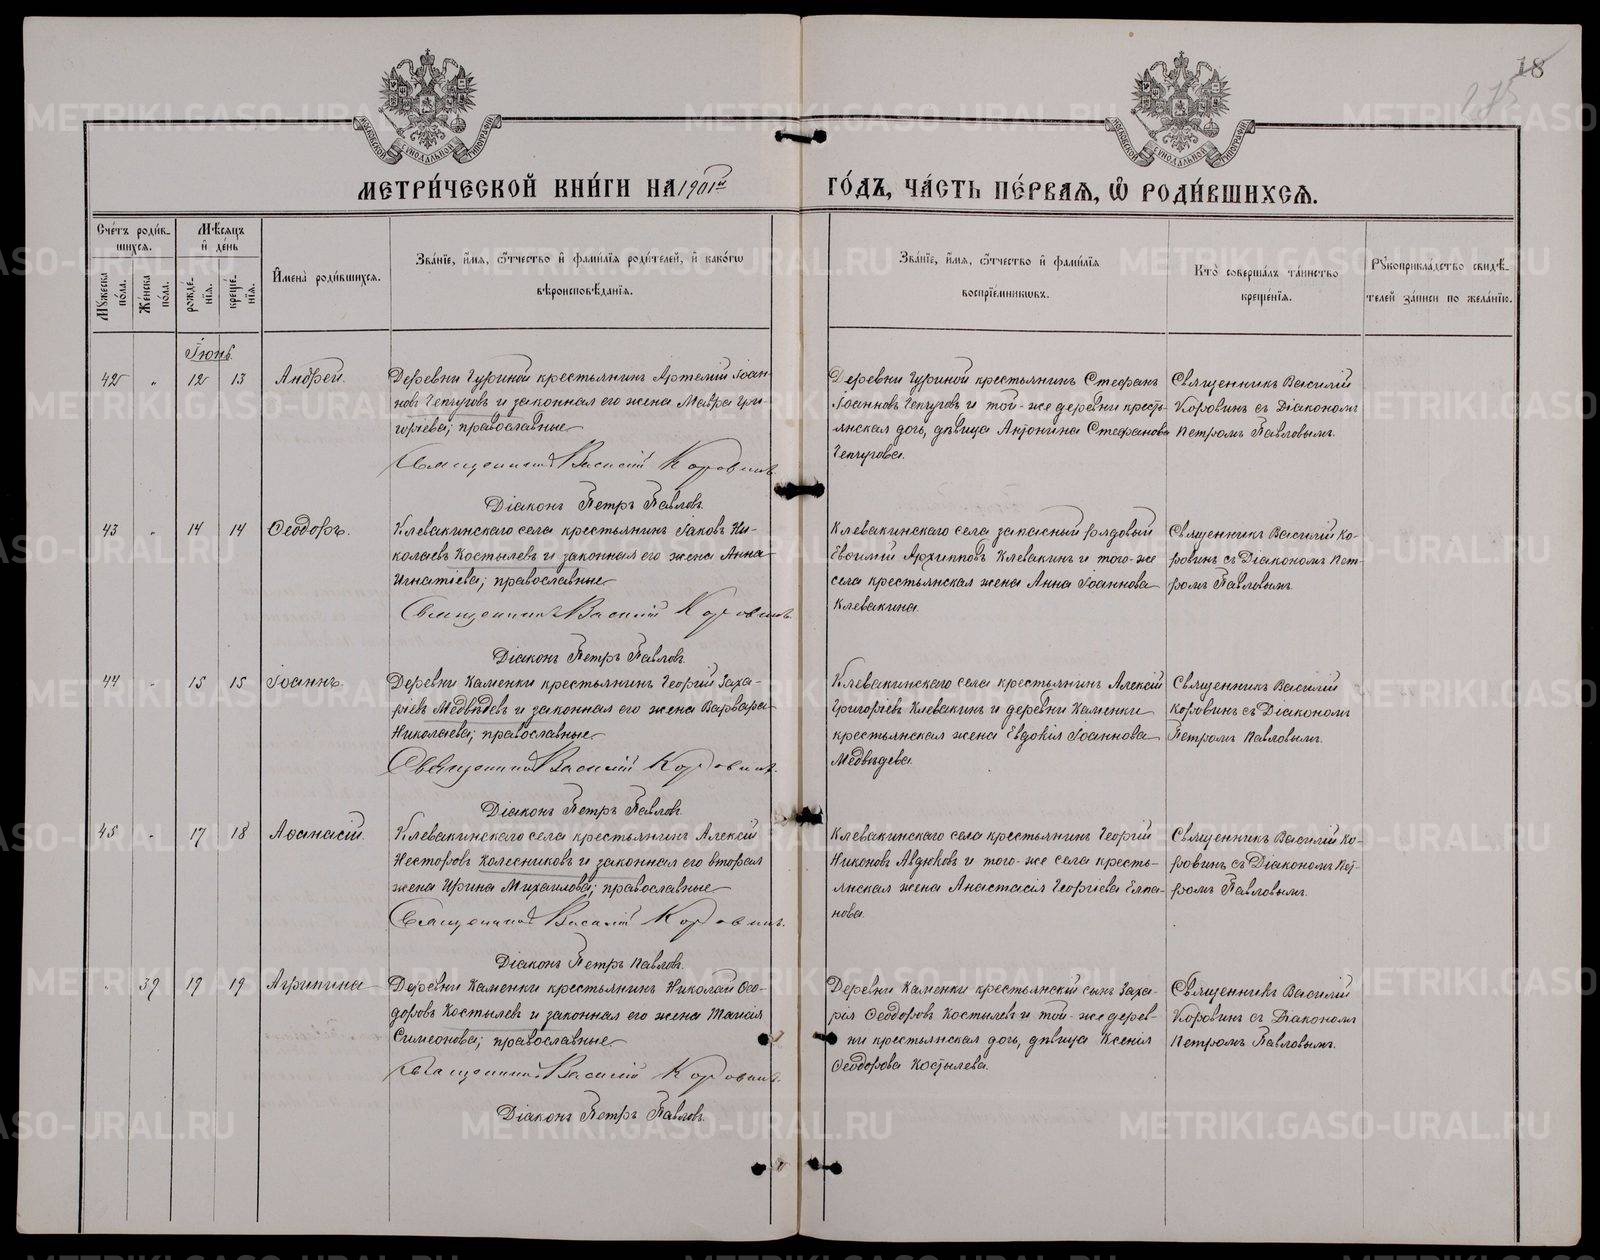 18
275
МОСКОВСКОЙ СѴНОДАЛЬНОЙ ТИПОГРАФІИ
МОСКОВСКОЙ СѴНОДАЛЬНОЙ ТИПОГРАФІИ
МЕТРИ́ЧЕСКОЙ КНИ́ГИ НА 1901й
ГО́ДЪ, ЧА́СТЬ ПЕ́РВАѦ, Ѽ РОДИ́ВШИХСѦ.
Сче́тъ роди́в-
шихсѧ.
Мѣ́сѧцъ
и҆ де́нь
Мꙋ́жеска
по́ла.
Же́нска
по́ла.
рожде́-
нїѧ.
креще́-
нїѧ.
И҆мена̀ роди́вшихсѧ.
Зва́нїе, и҆́мѧ, ѻ҆́тчество и҆ фами́лїѧ роди́телей, и҆ како́гѡ
вѣроисповѣ́данїѧ.
Зва́нїе, и҆́мѧ, ѻ҆́тчество и҆ фами́лїѧ
воспрїе́мникѡвъ.
Кто̀ соверша́лъ та́инство
креще́нїѧ.
Рꙋкоприкла́дство свидѣ́-
телей за́писи по жела́нїю.
Іюнь
42 " 12 13 Андрей.
Деревни Гуриной крестьянинъ Артемій Іоан-
новъ Чепчуговъ и законная его жена Мавра Гри-
горіева; православные
Священникъ Василій Коровинъ.
Діаконъ Петръ Павловъ.
Деревни Гуриной крестьянинъ Стефанъ
Іоанновъ Чепчуговъ и той-же деревни кресть-
янская дочь, дѣвица Антонина Стефанова
Чепчугова.
Священникъ Василій
Коровинъ съ Діакономъ
Петромъ Павловымъ.
43 " 14 14 Ѳеодоръ.
Клевакинскаго села крестьянинъ Іаковъ Ни-
колаевъ Костылевъ и законная его жена Анна
Игнатіева; православные
Священникъ Василій Коровинъ.
Діаконъ Петръ Павловъ.
Клевакинскаго села запасный рядовый
Евѳимій Архипповъ Клевакинъ и того-же
села крестьянская жена Анна Іоаннова
Клевакина.
Священникъ Василій Ко-
ровинъ съ Діакономъ Пет-
ромъ Павловымъ.
44 " 15 15 Іоаннъ.
Деревни Каменки крестьянинъ Георгій Заха-
ріевъ Медвѣдевъ и законная его жена Варвара
Николаева; православные
Священникъ Василій Коровинъ.
Діаконъ Петръ Павловъ.
Клевакинскаго села крестьянинъ Алексій
Григоріевъ Клевакинъ и деревни Каменки
крестьянская жена Евдокія Іоаннова
Медвѣдева.
Священникъ Василій
Коровинъ съ Діакономъ
Петромъ Павловымъ.
45 " 17 18 Аѳанасій.
Клевакинскаго села крестьянинъ Алексій
Несторовъ Колесниковъ и законная его вторая
жена Ирина Михаилова; православные
Священникъ Василій Коровинъ.
Діаконъ Петръ Павловъ.
Клевакинскаго села крестьянинъ Георгій
Никоновъ Авдюковъ и того-же села кресть-
янская жена Анастасія Георгіева Елпа-
нова.
Священникъ Василій Ко-
ровинъ съ Діакономъ Пет-
ромъ Павловымъ.
" 39 19 19 Агрипина
Деревни Каменки крестьянинъ Николай Ѳео-
доровъ Костылевъ и законная его жена Таисія
Симеонова; православные
Священникъ Василій Коровинъ.
Діаконъ Петръ Павловъ.
Деревни Каменки крестьянскій сынъ Заха-
рія Ѳеодоровъ Костылевъ и той-же дерев-
ни крестьянская дочь, дѣвица Ксенія
Ѳеодорова Костылева.
Священникъ Василій
Коровинъ съ Діакономъ
Петромъ Павловымъ.
METRIKI.GASO-URAL.RU